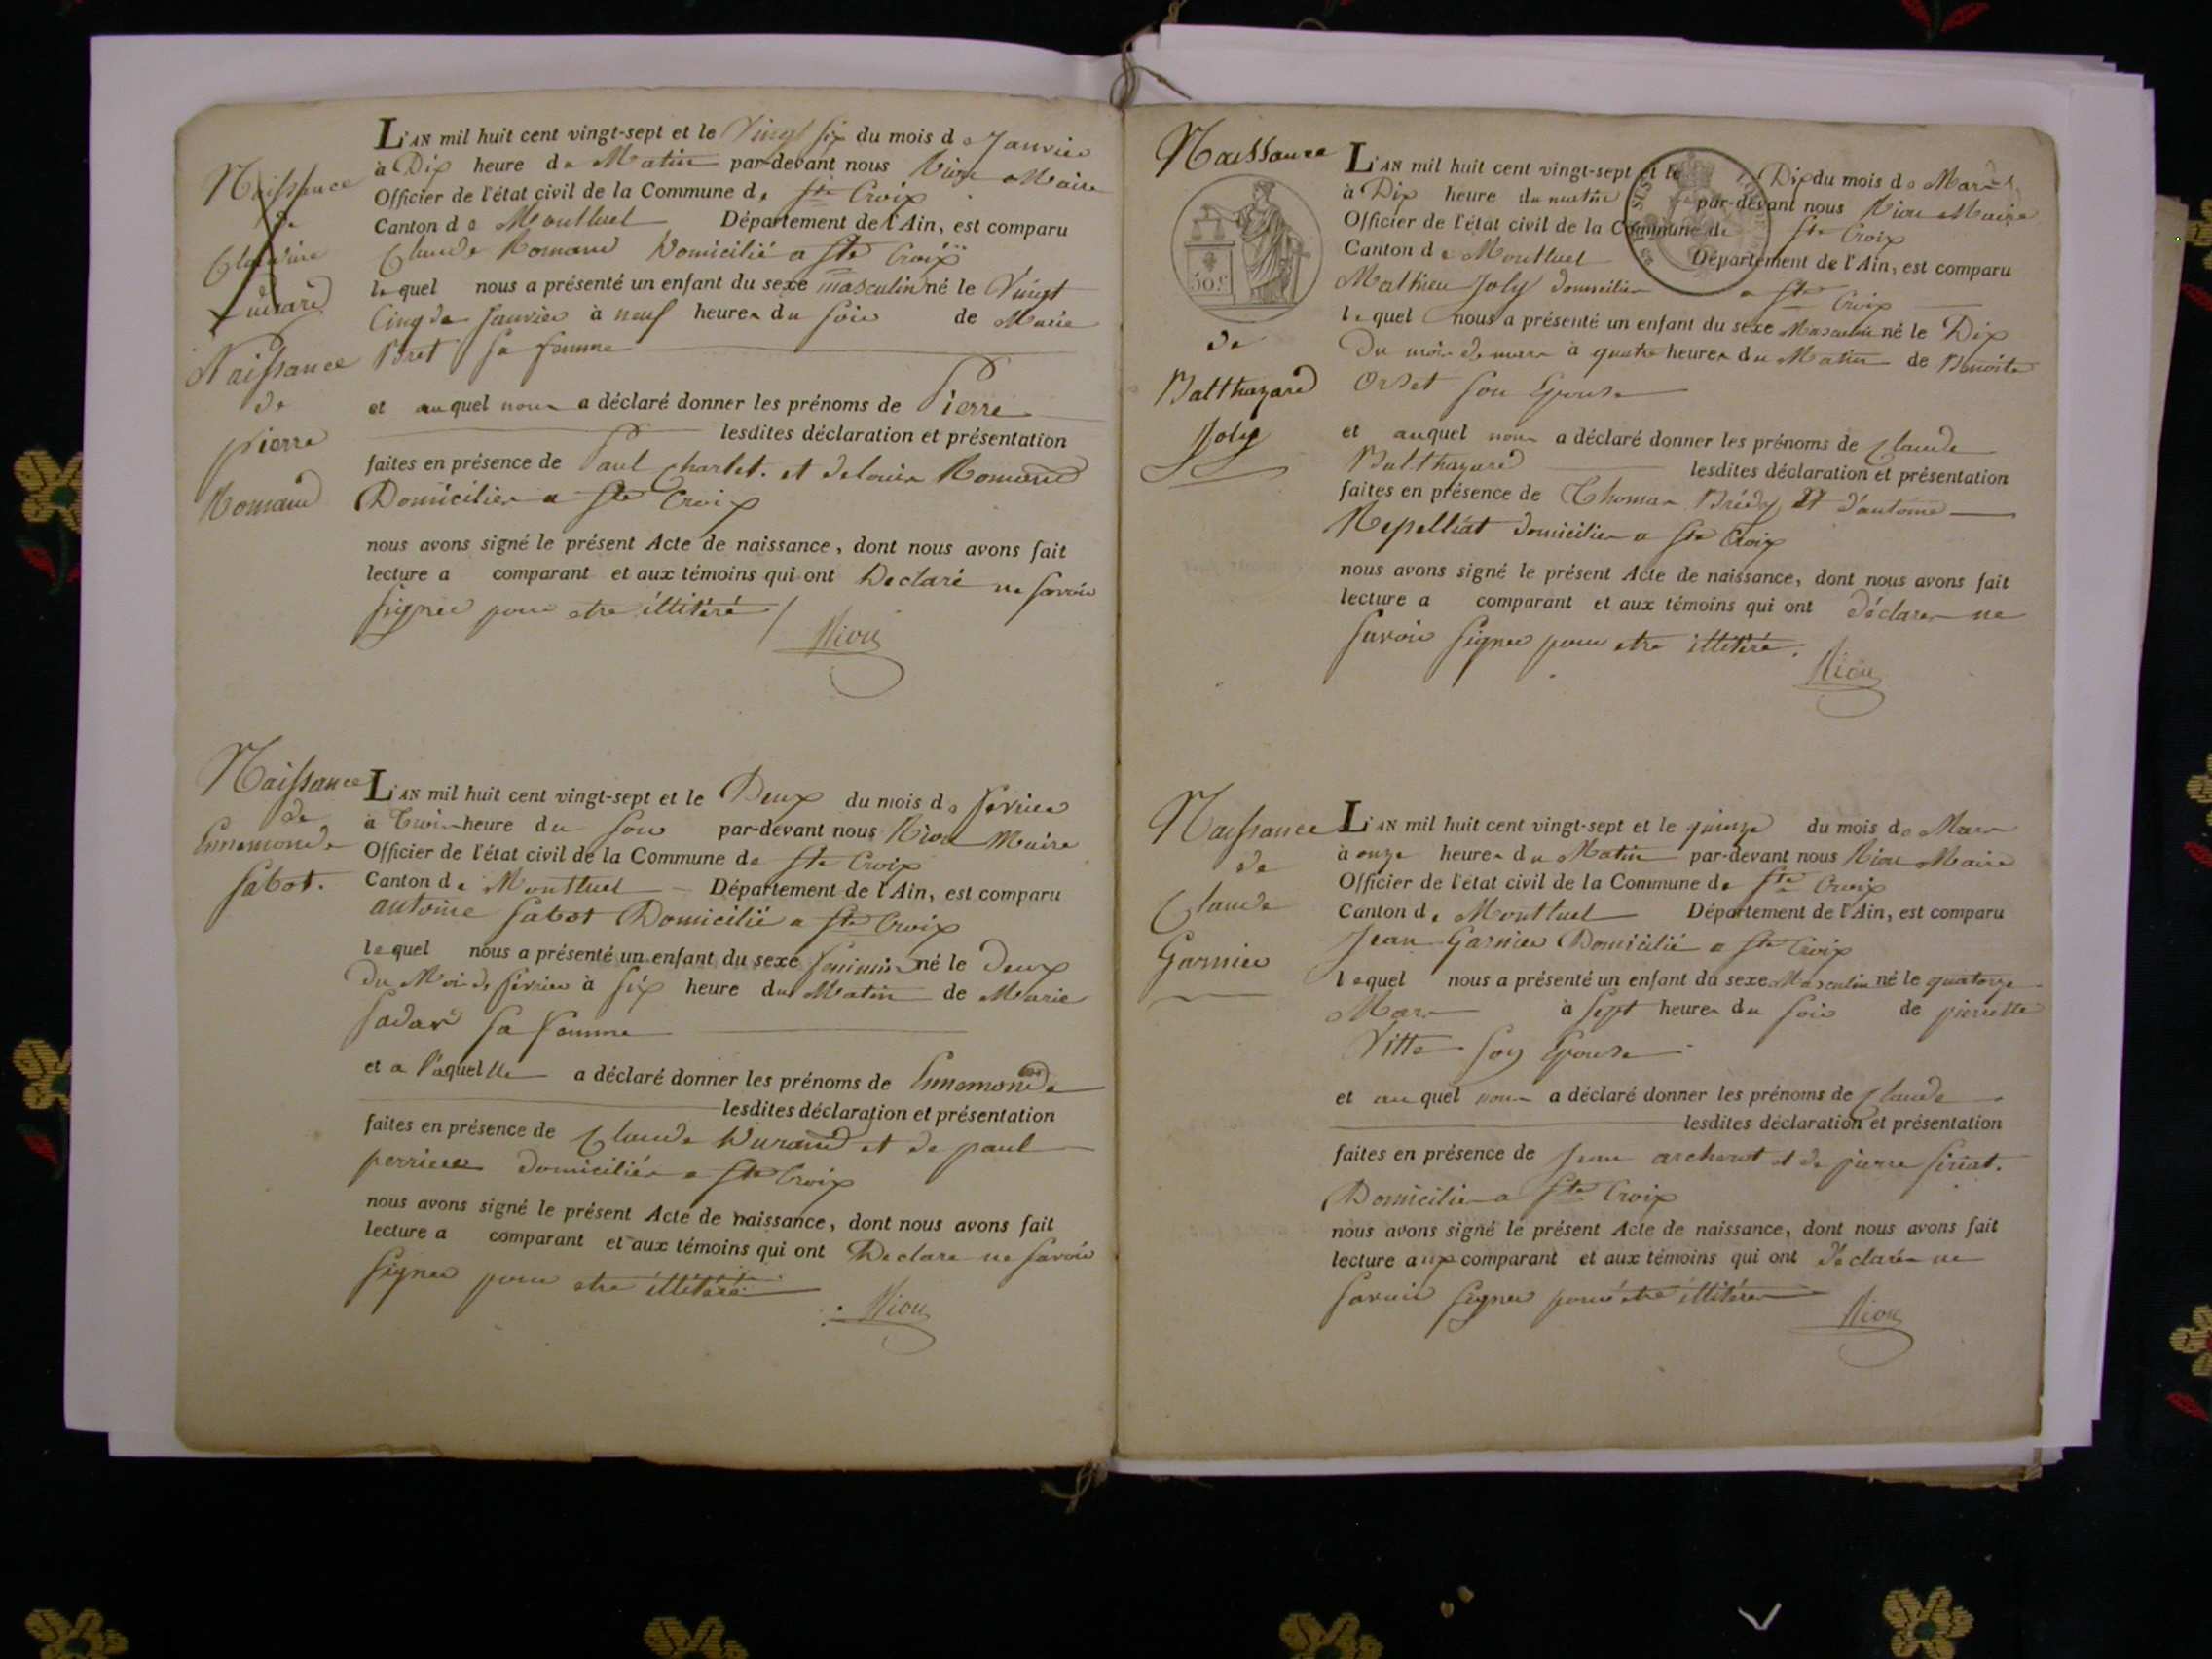 Naissance
de
Claudine
Naissance
de
pierre
Romand
L'AN mil huit cent vingt-sept et le Vingt six du mois de Janvier
à Dix heure du Matin par-devant nous Riou Maire
Officier de l'état civil de la Commune de Ste Croix
Canton de Montluel Département de l'Ain, est comparu
Claude Romand Domicilié a Ste Croix
lequel nous a présenté un enfant du sexe masculin né le Vingt
Cinq de Janvier à neuf heures du soir de Marie
Bret sa femme
et auquel nous a déclaré donner les prénoms de Pierre
lesdites déclaration et présentation
faites en présence de Paul Charlet. et de louis Romand
Domicilies a Ste Croix
nous avons signé le présent Acte de naissance, dont nous avons fait
lecture a comparant et aux témoins qui ont Declaré ne savoir
signer pour etre illitéré
Riou
Naissance
de
Ennemonde
Sabot.
L'AN mil huit cent vingt-sept et le Deux du mois de fevrier
à Trois heure du soir par-devant nous Riou Maire
Officier de l'état civil de la Commune de Ste Croix
Canton de Montluel Département de l'Ain, est comparu
antoine Sabot Domicilié a Ste Croix
lequel nous a présenté un enfant du sexe feminin né le deux
du Mois de fevrier à six heure du Matin de Marie
sa femme
et a laquelle a déclaré donner les prénoms de Ennemonde
lesdites déclaration et présentation
faites en présence de Claude Durand et de paul
perrier domiciliés a Ste Croix
nous avons signé le présent Acte de naissance, dont nous avons fait
lecture a comparant et aux témoins qui ont Declare ne savoir
signer pour etre illitéré
Riou
Naissance
50.c
de
Balthazard
Joly
L'AN mil huit cent vingt-sept et le Dix du mois de Mars
à Dix heure du matin par-devant nous Riou Maire
Officier de l'état civil de la Commune de Ste Croix
Canton de Montluel Département de l'Ain, est comparu
Mathieu Joly domicilier a Ste Croix
lequel nous a présenté un enfant du sexe Masculin né le Dix
du mois de mars à quatre heures du Matin de Benoite
Orset son Epouse
et auquel nous a déclaré donner les prénoms de Claude
Balthazard lesdites déclaration et présentation
faites en présence de Thomas Brédy et d'antoine
Repelliat domicilies a Ste Croix
nous avons signé le présent Acte de naissance, dont nous avons fait
lecture a comparant et aux témoins qui ont déclarer ne
savoir signer pour etre illitéré.
Riou
Naissance
de
Claude
Garnier
L'AN mil huit cent vingt-sept et le quinze du mois de Mars
à onze heures du Matin par-devant nous Riou Maire
Officier de l'état civil de la Commune de Ste Croix
Canton de Montluel Département de l'Ain, est comparu
Jean Garnier Domicilié a Ste Croix
lequel nous a présenté un enfant du sexe Masculin né le quatorze
Mars à sept heures du soir de pierrette
Vitte son Epouse
et auquel nous a déclaré donner les prénoms de Claude
lesdites déclaration et présentation
faites en présence de Jean et de pierre
Domicilies a Ste Croix
nous avons signé le présent Acte de naissance, dont nous avons fait
lecture aux comparant et aux témoins qui ont déclarés ne
savoir signer pour etre illitéres
Riou